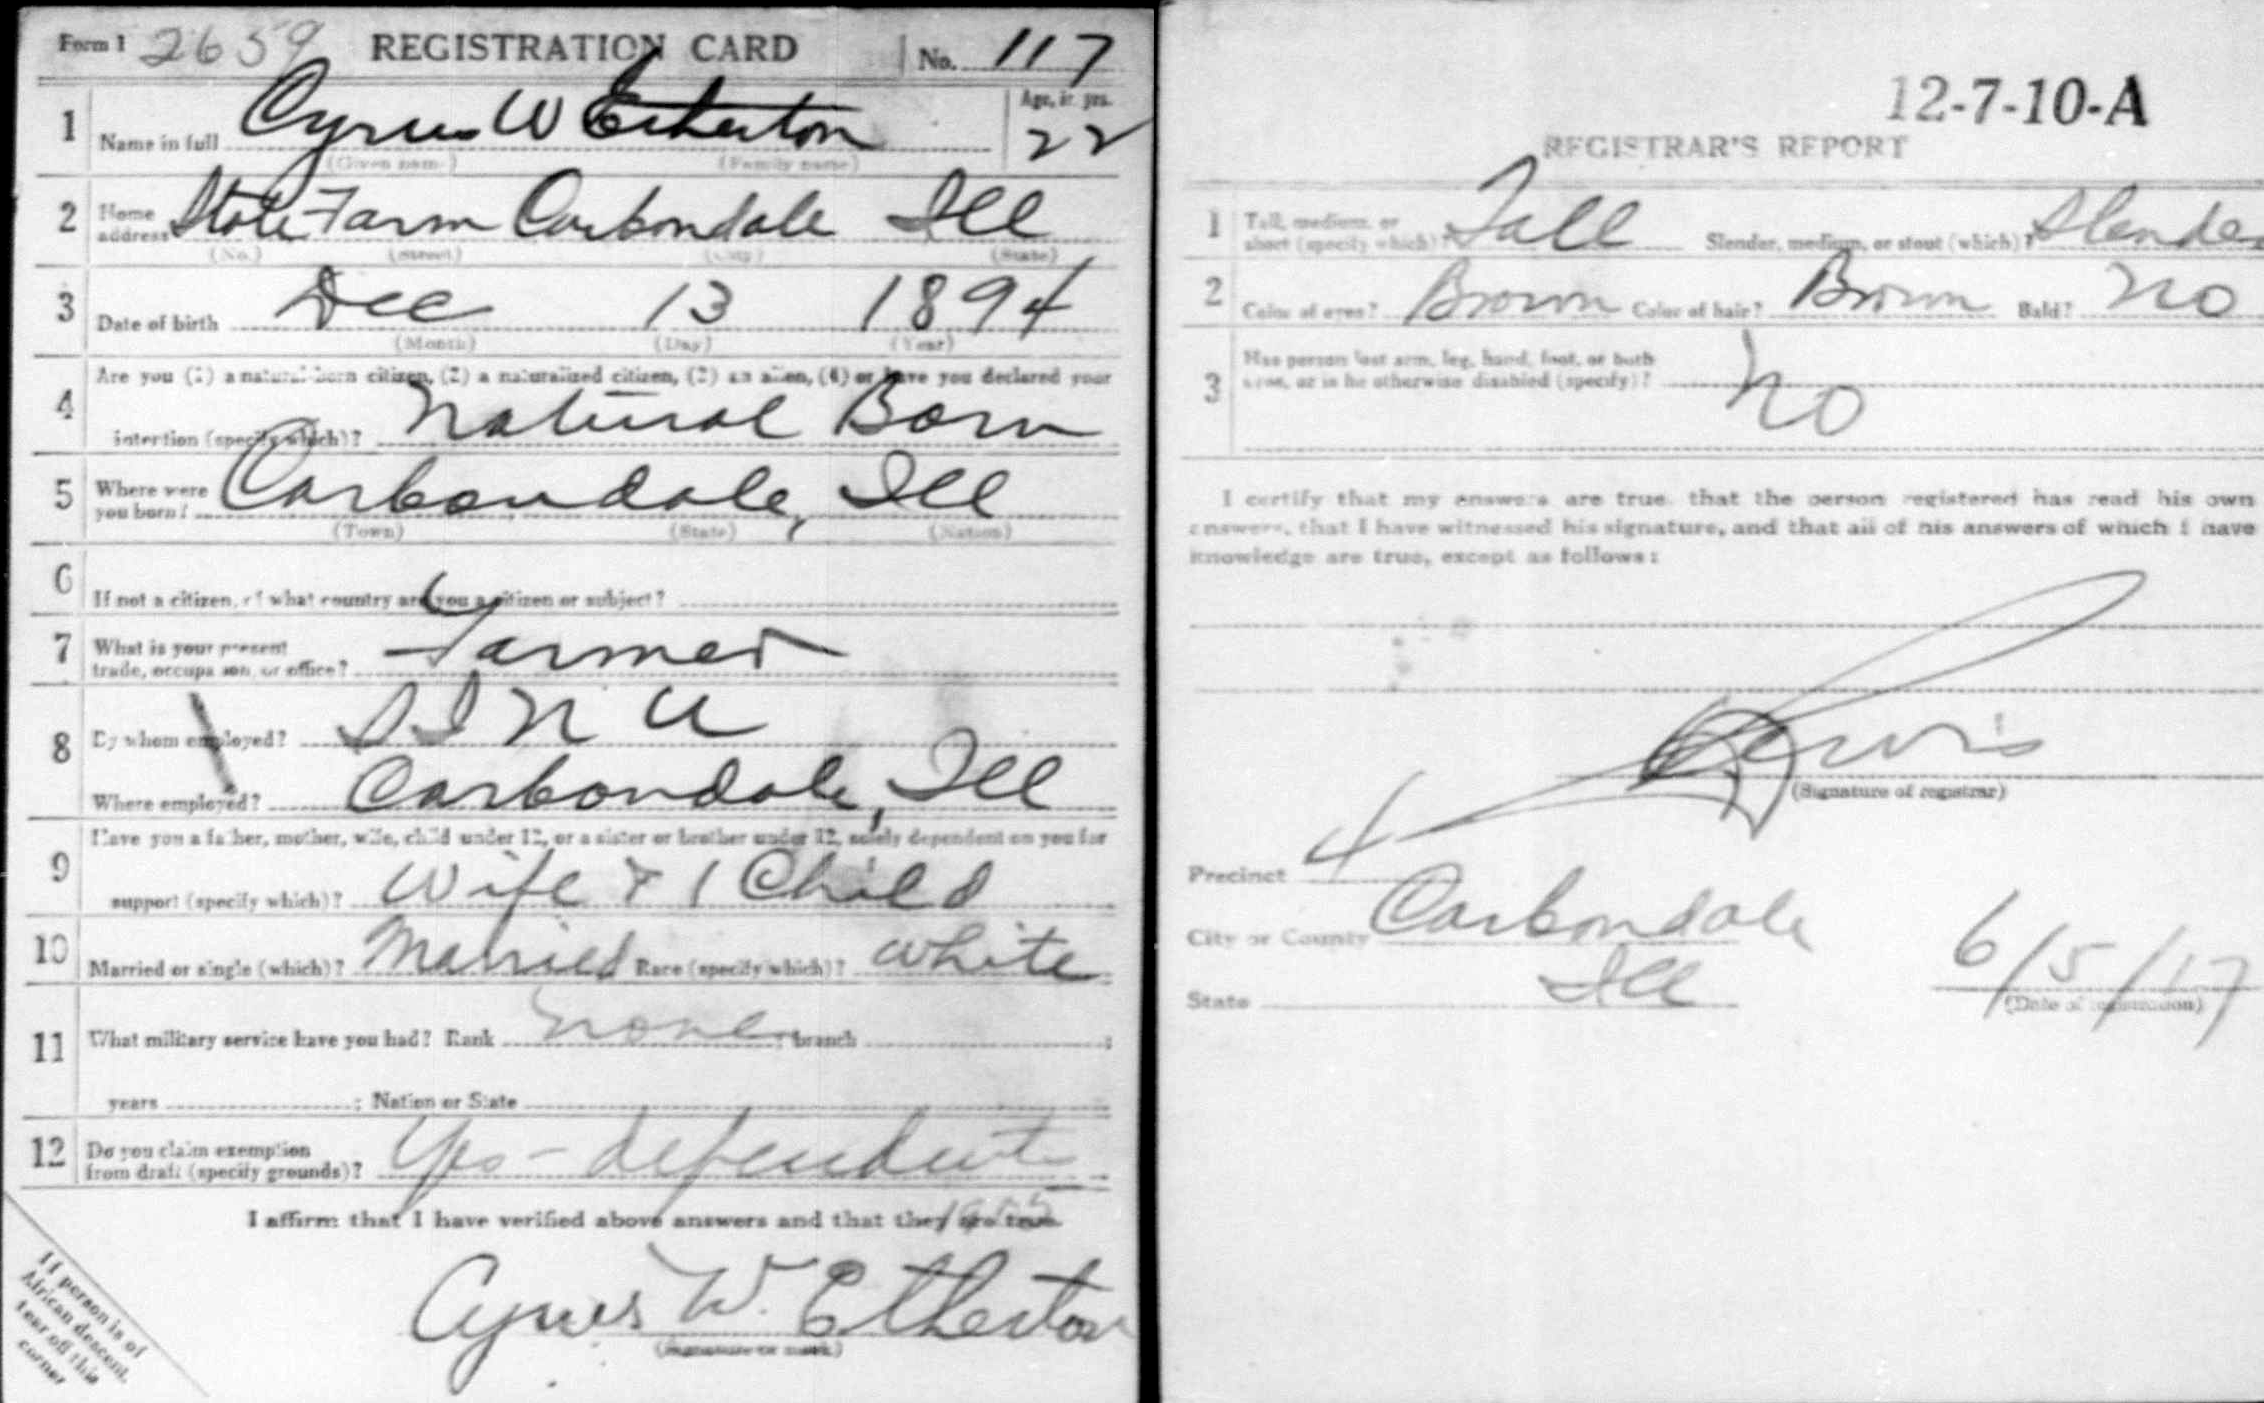 Form 1 2659 REGISTRATION CARD No. 117
1 Name in full Cyrus W Etherton Age, in yrs. 22
(Given name) (Family name)
2 Home address State Farm Carbondale Ill
(No.) (Street) (City) (State)
3 Date of birth Dec 13 1894
(Month) (Day) (Year)
4 Are you (1) a natural-born citizen, (2) a naturalized citizen, (3) an alien, (4) or have you declared your
intention (specify which)? Natural Born
5 Where were you born? Carbondale, Ill
(Town) (State) (Nation)
6 If not a citizen, of what country are you a citizen or subject?
7 What is your present
trade, occupation, or office? Farmer
8 By whom employed? S I N U
Where employed? Carbondale, Ill
9 Have you a father, mother, wife, child under 12, or a sister or brother under 12, solely dependent on you for
support (specify which)? Wife & 1 Child
10 Married or single (which)? Married Race (specify which)? White
11 What military service have you had? Rank None ; branch ;
years ; Nation or State
12 Do you claim exemption
from draft (specify grounds)? Yes - dependents
I affirm that I have verified above answers and that they are true.
Cyrus W. Etherton
(Signature or mark)
If person is of
African descent,
tear off this
corner
12-7-10-A
REGISTRAR'S REPORT
1 Tall, medium, or
short (specify which)? Tall Slender, medium, or stout (which)? Slender
2 Color of eyes? Brown Color of hair? Brown Bald? No
3 Has person lost arm, leg, hand, foot, or both
arms, or is he otherwise disabled (specify)? No
I certify that my answers are true, that the person registered has read his own
answers, that I have witnessed his signature, and that all of his answers of which I have
knowledge are true, except as follows:
(Signature of registrar)
Precinct 4
City or County Carbondale
State Ill 6/5/17
(Date of registration)